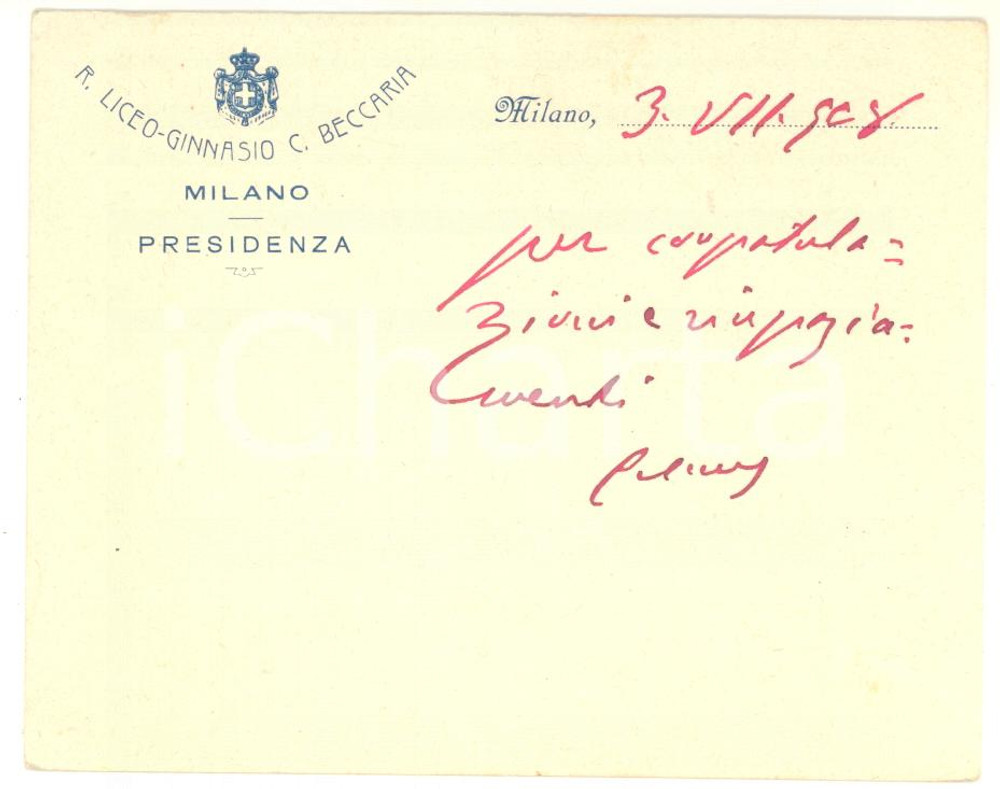 R. LICEO-GINNASIO C. BECCARIA
MILANO
PRESIDENZA
Milano, 3. VII. 908
per congratula=
zioni e ringrazia=
menti
iCharta